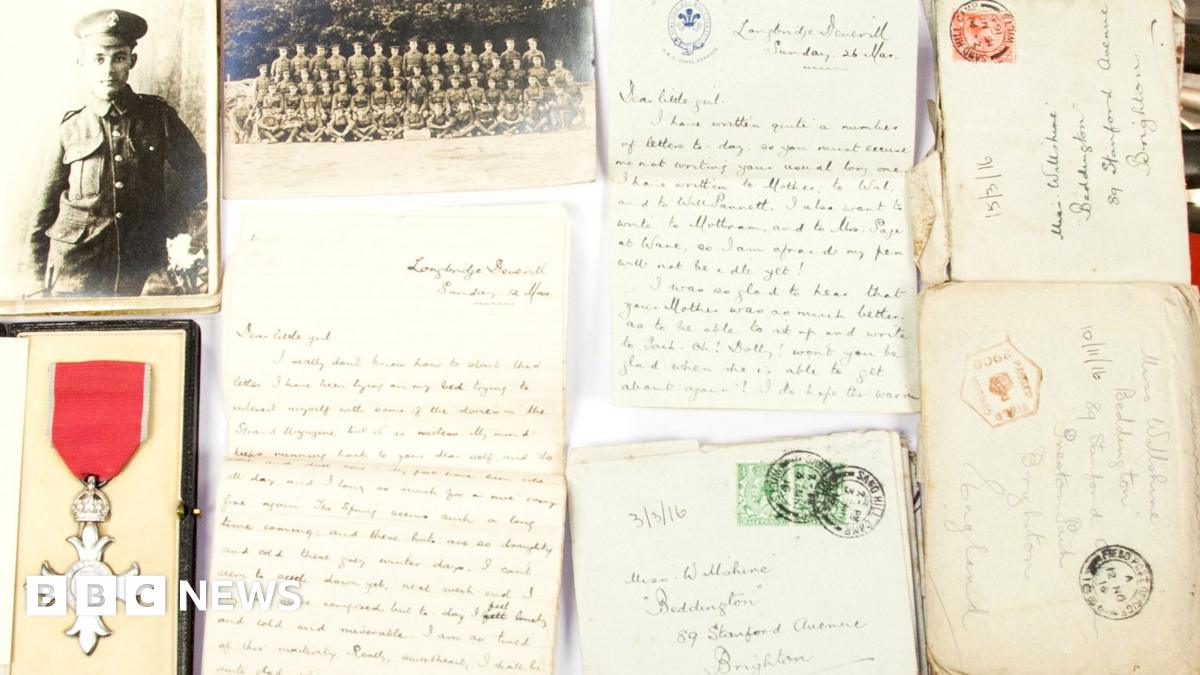 Longbridge Deverill
Sunday 12 Mar.
Dear little girl
I really don't know how to start this
letter. I have been lying on my bed trying to
interest myself with some of the stories in the
Strand Magazine but it is useless. My mind
keeps running back to your dear self, and
all day and I long so much for a nice cosy
fire again. The Spring seems such a long
time coming, and these huts are so draughty
and cold these grey winter days. I can't
seem to settle down yet, next week end I
be composed but to day I feel lonely
and cold and miserable. I am so tired
of this inactivity. Really, sweetheart, I shall be
quite glad
Longbridge Deverill
Sunday. 26 Mar.
Dear little girl.
I have written quite a number
of letters to-day. so you must excuse
me not writing your usual long one
I have written to Mother, to Wal,
and to Will Pannett. I also want to
write to Mottram, and to Mrs. Page
at Wane, so I am afraid my pen
will not be idle yet!
I was so glad to hear that
your Mother was so much better.
as to be able to sit up and write
to Jack. Oh! Dolly! won't you be
glad when she is able to get
about again! I do hope the warm
3/3/16
SAND HILL CAMP
Miss. Willshire
"Beddington"
89 Stanford Avenue
Brighton
SAND HILL CAMP
15/3/16
Miss. Willshire
"Beddington"
89 Stanford Avenue
Brighton
10/11/16
Miss Willshire
"Beddington"
89 Stanford
Preston Park
Brighton
England
FIELD POST OFFICE
A
12 NO
16
BBC NEWS